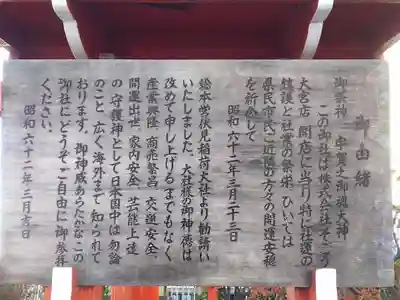 御由緒
御祭神 宇賀之御魂大神
この御社は株式会社そごう
大宮店 開店に当り特に社運の
鎮護と社業の繁栄、ひいては
県民市民ご近隣の方々の開運安穏
を祈念して
昭和六十二年三月二十三日
総本営伏見稲荷大社より勧請い
たしました。大神様の御神徳は
改めて申し上げるまでもなく
産業興隆 商売繁昌 交通安全
開運出世 家内安全 芸能上達
の守護神として日本国中は勿論
のこと、広く海外まで知られて
おります。御神威あらたかなこの
御社にどうぞご自由に御参拝
ください。
昭和六十二年三月吉日